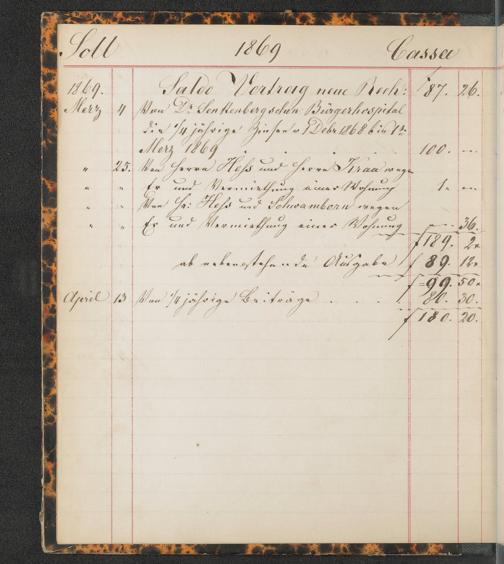 Soll 1869 Cassa
1869. Saldo Vortrag neue Rech: f 87. 26.
Merz 4 Von Dr. Senkenbergschen Bürgerhospital
die 1/4 jährige Zinsen v. 1 Debr 1868 bis 1t
Merz 1869 . . . . 100. —
" 25. Von Herrn Hess und Herrn Kraa wege
" " Er und Vermiethung einer Wohnung 1. —
" " Von Hr. Hess und Schwamborn wegen
" " Er und Vermiethung einer Wohnung —. 36.
f 189. 2.
ab nebenstehende Ausgabe f 89. 12.
f 99. 50.
April 13 Von 1/4 jährige Beiträge . . . . 80. 30.
f 180. 20.